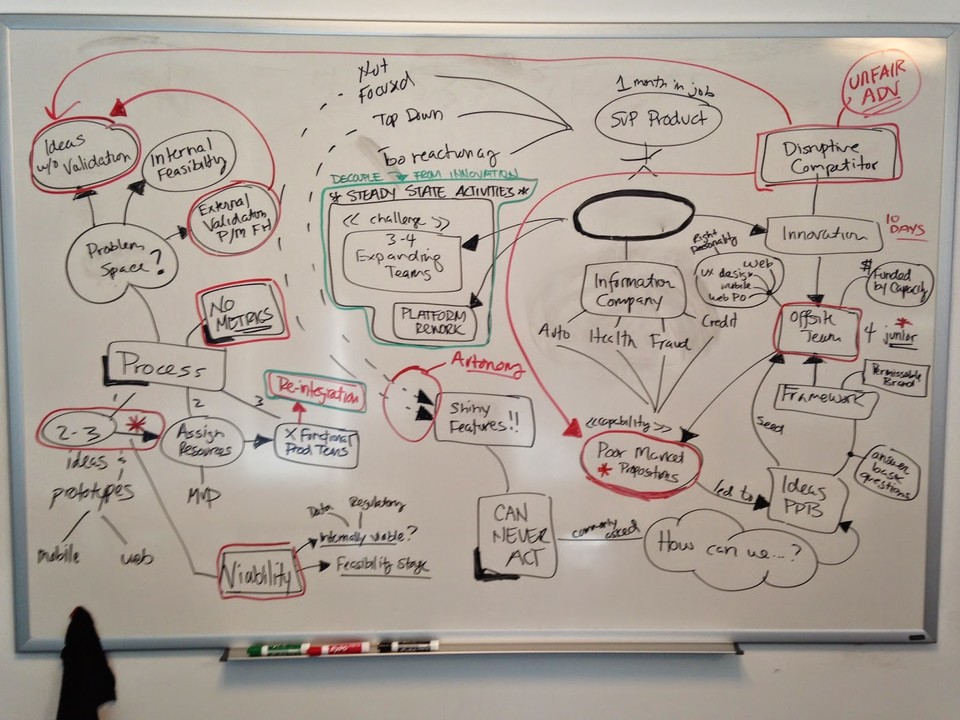 Not
Focused
Top Down
Too reactionary
DECOUPLE FROM INNOVATION
* STEADY STATE ACTIVITIES *
<< challenge >>
3-4
Expanding
Teams
PLATFORM
REWORK
1 month in job
SVP Product
UNFAIR
ADV
Disruptive
Competitor
Innovation
10
DAYS
Right
personality
web
UX design
mobile
web PO
$
Funded
by Capacity
Offsite
Team
4 junior
*
Permissable
Brand
Framework
seed
answer
basic
questions
Ideas
PDB
led to
Information
Company
Auto
Health
Fraud
Credit
<<capability>>
Poor Market
* Propositions
How can we...?
commonly
asked
CAN
NEVER
ACT
Shiny
Features!!
Autonomy
Ideas
w/o Validation
Internal
Feasibility
External
Validation
P/M FH
Problem
Space?
NO
METRICS
Process
2
3
Re-integration
2-3
*
ideas
prototypes
mobile
web
Assign
Resources
MVP
X Functional
Prod Teams
Viability
Data
Regulatory
Internally viable?
Feasibility Stage